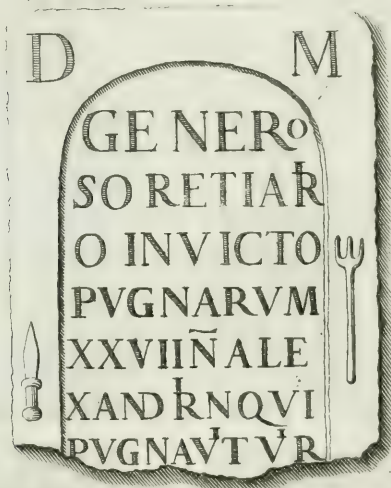 D M
GENERO
SO RETIAR
O INVICTO
PVGNARVM
XXVIIN̄ ALE
XANDRNQVI
PVGNAVTVR